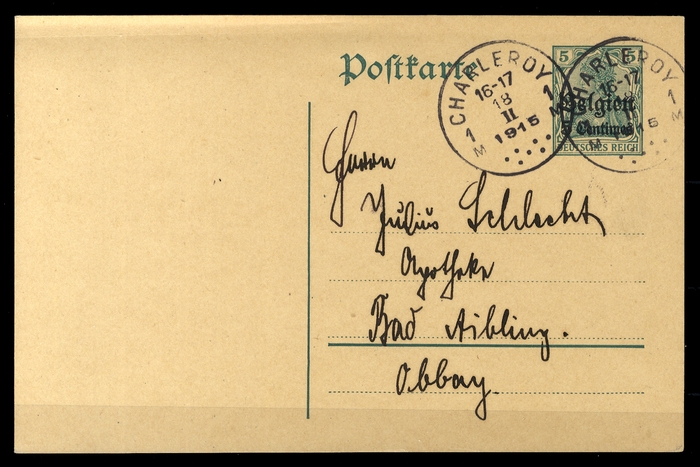 Postkarte
5 5
Belgien
5 Centimes
DEUTSCHES REICH
CHARLEROY
16-17
18
II
1915
1 M 1 M
CHARLEROY
16-17
18
1915
M
Herrn
Julius Schlecht
Apotheke
Bad Aibling.
Obbay.